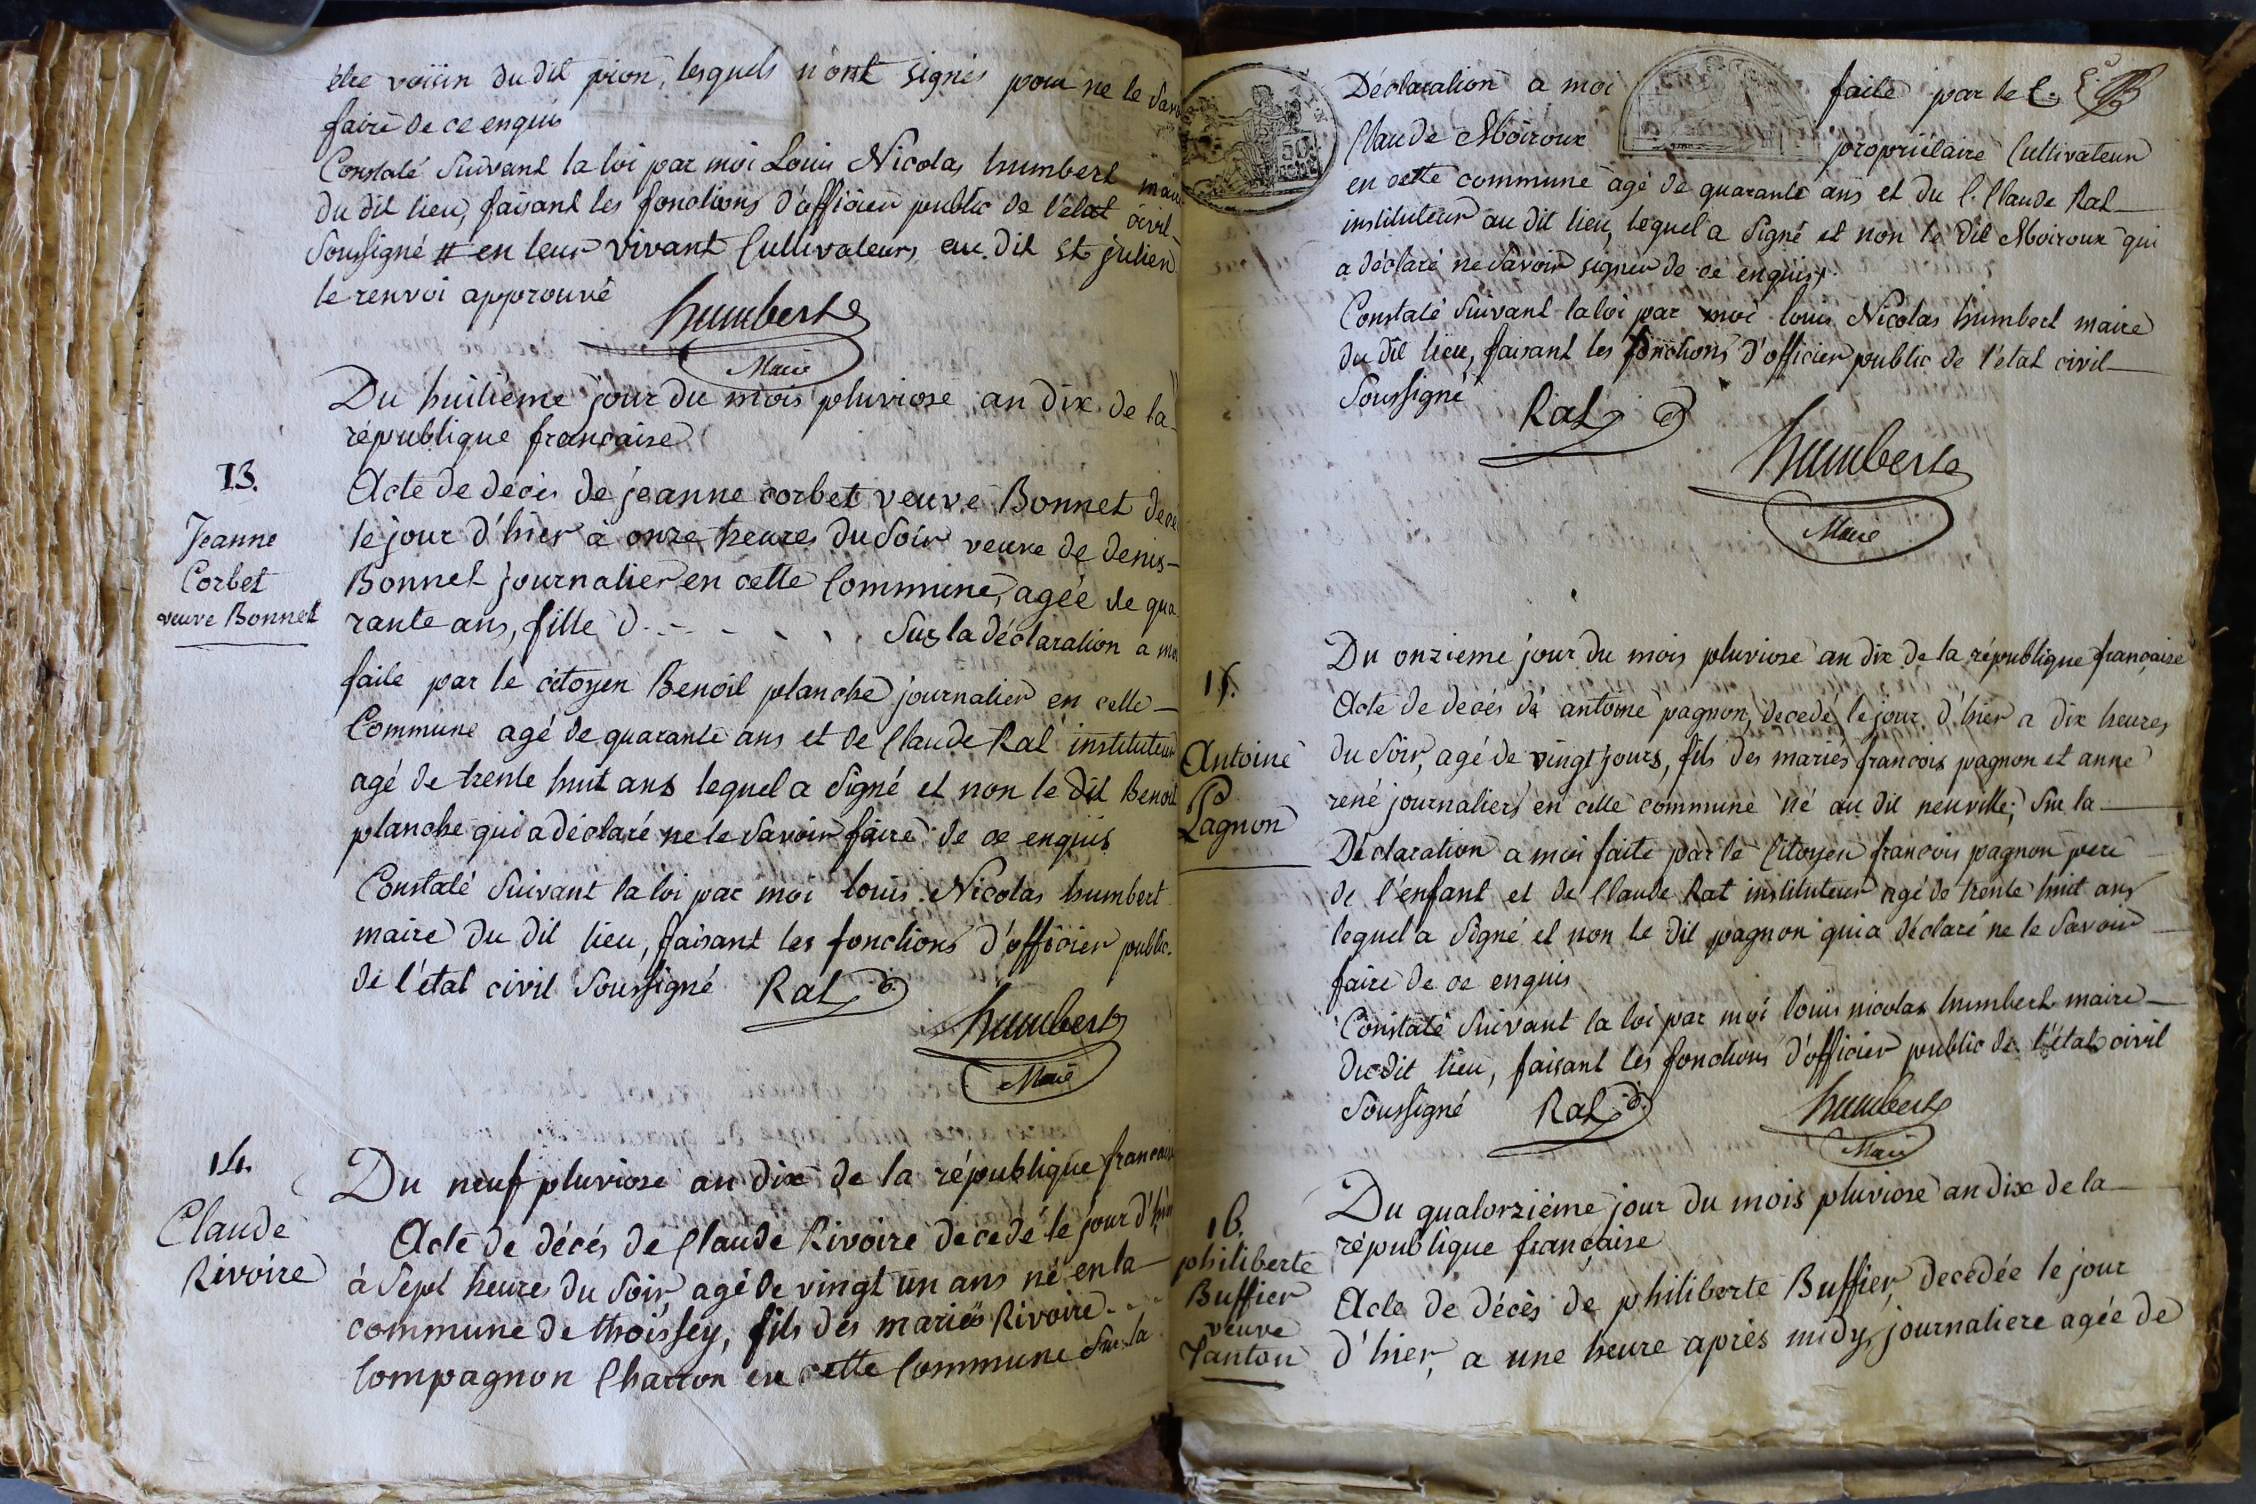 être voisin du dit pion, lesquels n'ont signés pour ne le
faire de ce enquis
Constaté suivant la loi par moi Louis Nicolas humbert maire
du dit lieu, faisant les fonctions d'officier public de l'état civil
soussigné # en leur vivant Cultivateurs au dit St julien
le renvoi approuvé
humbert
Maire
Du huitième jour du mois pluviose an dix de la
république française
13.
Jeanne
Corbet
veuve Bonnet
Acte de deces de jeanne corbet veuve Bonnet décé
le jour d'hier a onze heures du soir veuve de denis
Bonnet journalier en cette Commune, agée de qua
rante ans, fille d. - - - - - sur la déclaration a moi
faite par le citoyen Benoit planche journalier en cette
Commune agé de quarante ans et de Claude Rat instituteur
agé de trente huit ans lequel a signé et non le dit Benoit
planche qui a déclaré ne le savoir faire de ce enquis
Constaté suivant la loi par moi louis Nicolas humbert
maire du dit lieu, faisant les fonctions d'officier public
de l'état civil soussigné Rat
humbert
Maire
14.
Claude
Rivoire
Du neuf pluviose an dix de la république francais
Acte de décés de Claude Rivoire decedé le jour d'hier
à sept heures du soir agé de vingt un ans né en la
commune de thoissey, fils des mariés Rivoire - -
Compagnon Charron en cette Commune sur la
Déclaration a moi faite par le C.
Claude Moiroux propriétaire Cultivateur
en cette commune agé de quarante ans et du C. Claude Rat
instituteur au dit lieu, lequel a signé et non le dit Moiroux qui
a déclaré ne savoir signer de ce enquis.
Constaté suivant la loi par moi louis Nicolas humbert maire
du dit lieu, faisant les fonctions d'officier public de l'état civil
soussigné
Rat
humbert
Maire
Du onzieme jour du mois pluviose an dix de la république française
15.
Antoine
Pagnon
Acte de decés de antoine pagnon, decedé le jour d'hier a dix heures
du soir, agé de vingt jours, fils des mariés francois pagnon et anne
rené journaliers en cette commune né au dit neuville, sur la
Déclaration a moi faite par le Citoyen francois pagnon pere
de l'enfant et de Claude Rat instituteur agé de trente huit ans
lequel a signé et non le dit pagnon qui a déclaré ne le savoir
faire de ce enquis
Constaté suivant la loi par moi louis nicolas humbert maire
dudit lieu, faisant les fonctions d'officier public de l'état civil
soussigné Rat humbert
Maire
Du quatorzième jour du mois pluviose an dix de la
république française
16.
philiberte
Buffier
veuve
Tanton
Acte de décès de philiberte Buffier, decedée le jour
d'hier, a une heure après midy, journaliere agée de